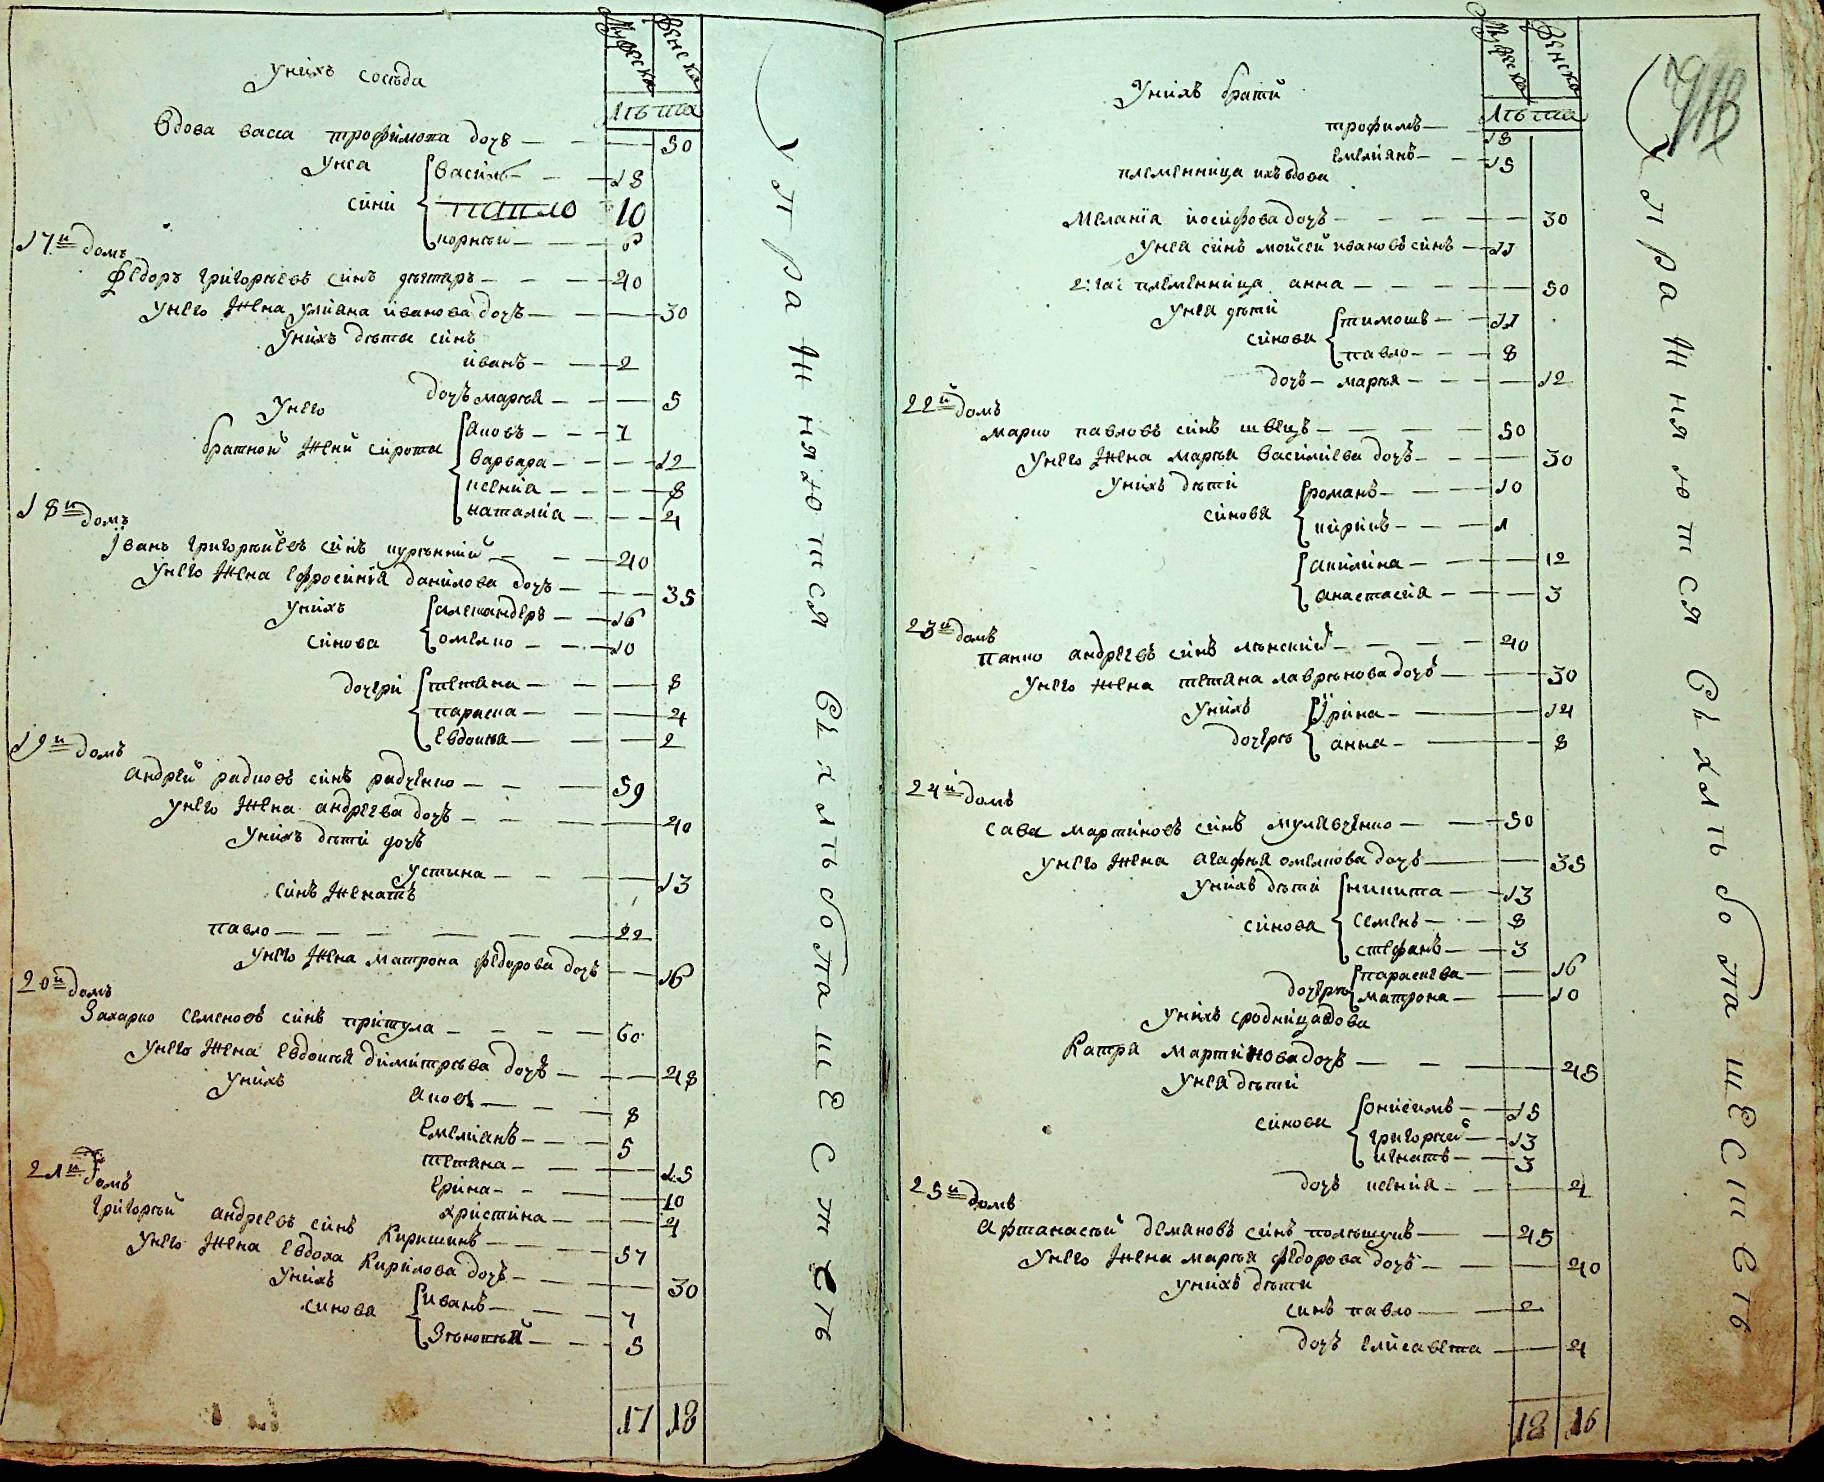 Мужеска Женска
Унихъ сосѣда
лѣта
Вдова васса трофимова дочь — 50
Унеа
сини
василь — 18
павло 10
корнѣй — 6
17й домъ
Федоръ григорьевъ синъ дегтяръ — 40
Унего жена улияна иванова дочъ — 30
Унихъ дѣти синъ
иванъ — 2
дочъ марья — 5
Унего
братной жени сироти
яковъ — 7
варвара — 12
ксения — 8
наталия — 4
18й домъ
Іванъ григорьйевъ синъ — 40
Унего жена ефросиния данилова дочъ — 35
Унихъ
синова
александеръ — 16
омелко — 10
дочери
тетяна — 8
параска — 4
евдокия — 2
19й домъ
андрей радковъ синъ радченко — 59
Унего жена андреева дочъ — 40
Унихъ дѣти дочъ
устина — 13
синъ женатъ
павло — 22
Унего жена матрона федорова дочъ — 16
20й домъ
Захарко семеновъ синъ притула — 60
Унего жена евдокия димитрѣва дочъ — 48
Унихъ
яковъ — 8
емелиянъ — 5
тетяна — 15
ерина — 10
христина — 4
21й домъ
григорѣй андреевъ синъ Киришинъ — 57
Унего жена евдоха Кирилова дочъ — 30
Унихъ
синова
иванъ — 7
Зѣновѣй — 5
17 18
упражняются въ хлѣбопашестъстве
Мужеска Женска
Унихъ брати
лѣта
трофимъ — 18
емелиянъ — 15
племенница ихъ вдова
Мелания йосифова дочъ — 30
Унея синъ мойсей ивановъ синъ — 11
2:я племенница анна — 50
Унея дѣти
синова
тимошъ — 11
павло — 8
дочъ — марья — 12
22й домъ
марко павловъ синъ швецъ — 50
Унего жена марья василиева дочъ — 30
Унихъ дѣти
синовя
романъ — 10
кирикъ — 1
акилина — 12
анастасия — 3
23й домъ
панко андреевъ синъ — 40
Унего жена тетяна лаврѣнова дочъ — 30
Унихъ
дочерѣ
Ірина — 14
анна — 8
24й домъ
сава мартиновъ синъ мулявченко — 50
Унего жена агафья омелкова дочъ — 35
Унихъ дѣти
синова
никита — 13
семенъ — 8
стефанъ — 3
дочерѣ
параскева — 16
матрона — 10
Унихъ сродница вдова
Катря мартинова дочъ — 45
Унея дѣти
синови
онисимъ — 15
григорий — 13
игнатъ — 3
дочъ ксения — 4
25й домъ
афтанасѣй демяновъ синъ — 45
Унего жена марья федорова дочъ — 40
Унихъ дѣти
синъ павло — 2
дочъ елисавета — 4
18 16